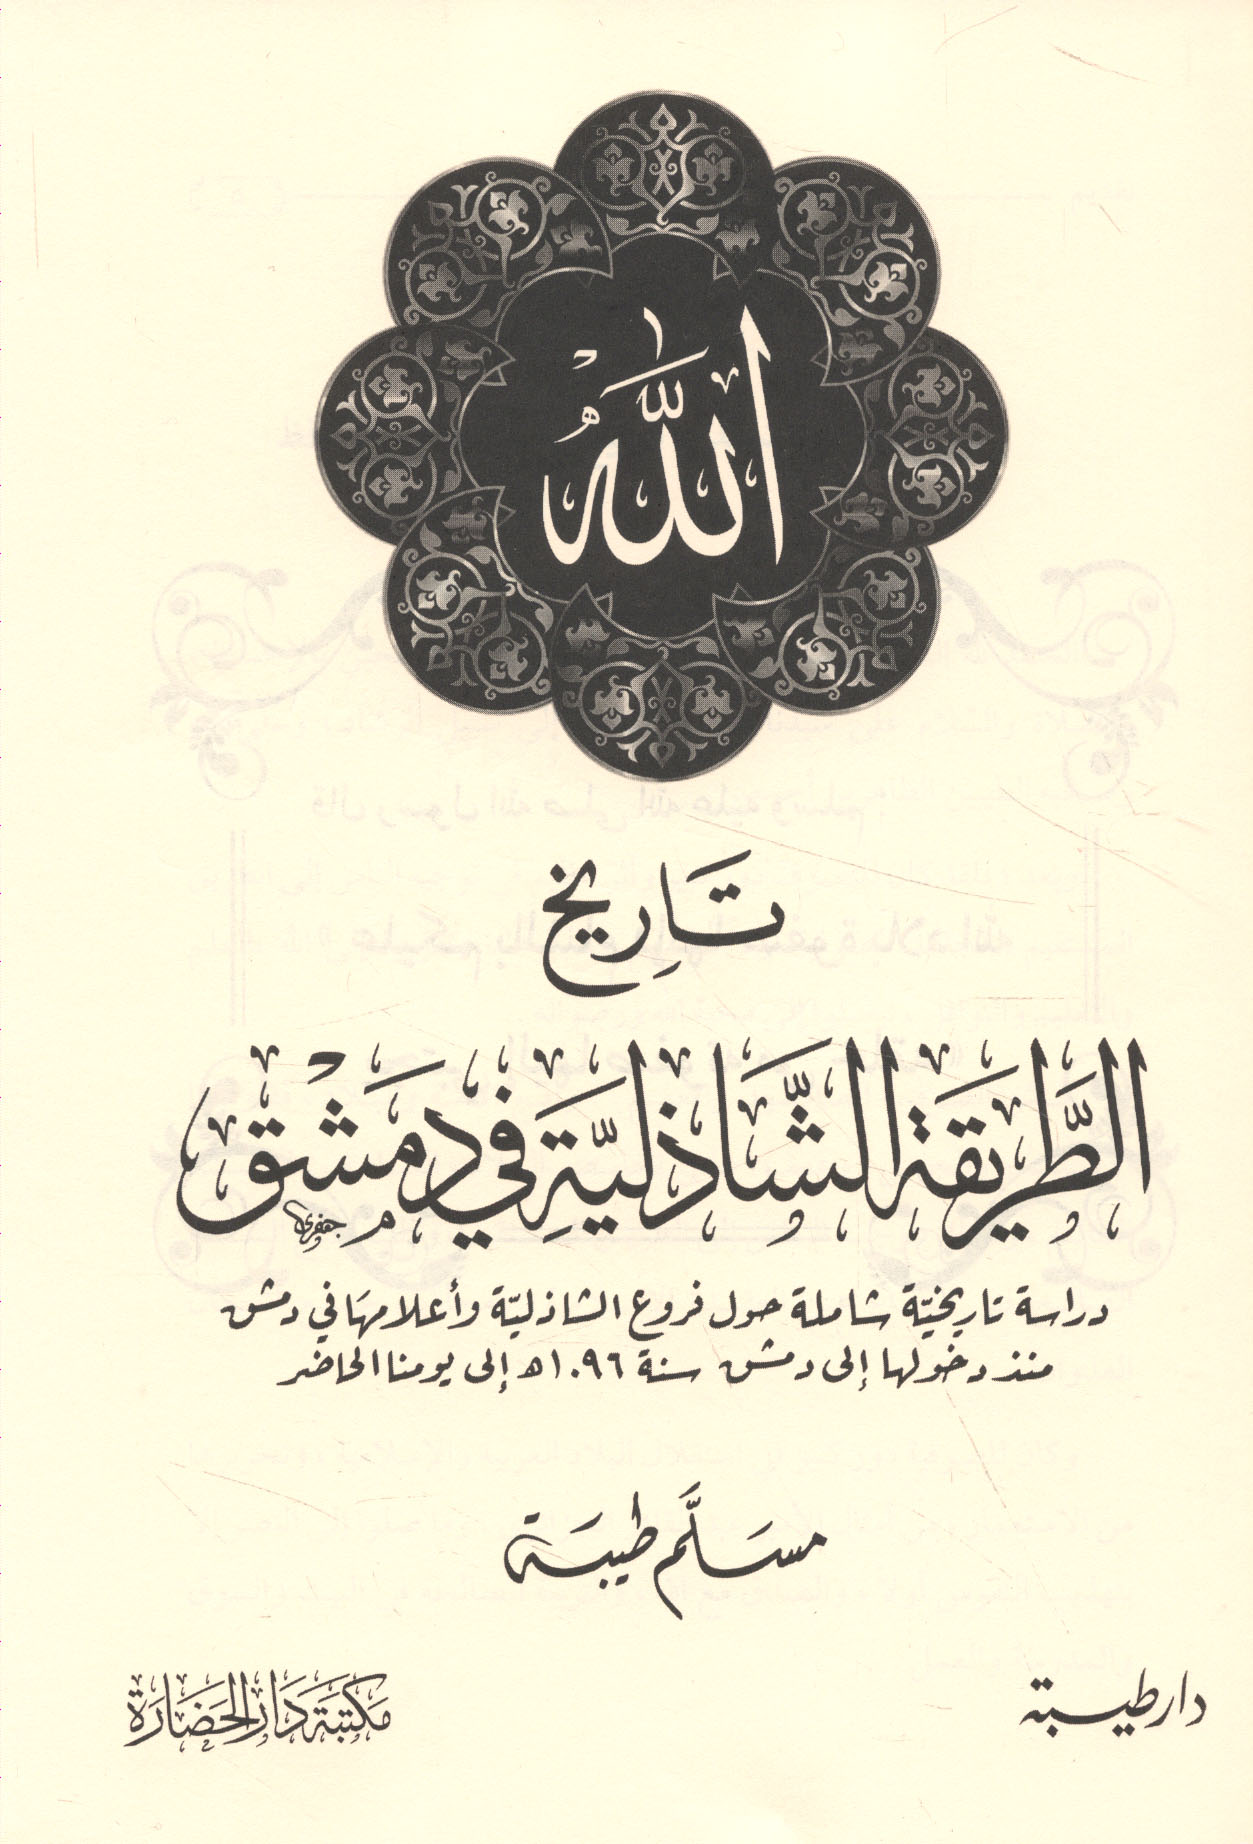 اللَّهُ
تَارِيخ
الطَّرِيقَة الشَّاذِليَّةِ في دِمَشْق
دراسة تاريخيّة شاملة حول فروع الشاذليّة وأعلامهَا في دمشق
منذ دخولها إلى دمشق سنة ١٠٩٦هـ إلى يومنا الحاضر
مسَلَّم طيبَة
دار طيبة
مَكتبَة دَار الحَضَارَة